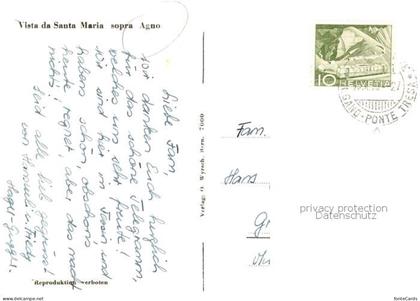 Vista da Santa Maria sopra Agno
Liebe Fam,
Wir danken Euch herzlich
für das schöne Telegramm,
welches uns sehr freute!
Wir sind hier im Tessin und
habens schön, obschons
heute regnet, aber das macht
nichts!
Seid alle lieb gegrüsst
von
Reproduktion verboten
Verlag: O. Wyrsch, Bern. 7060
10
HELVETIA
PONTE TRESA
Fam.
Hans
privacy protection
Datenschutz